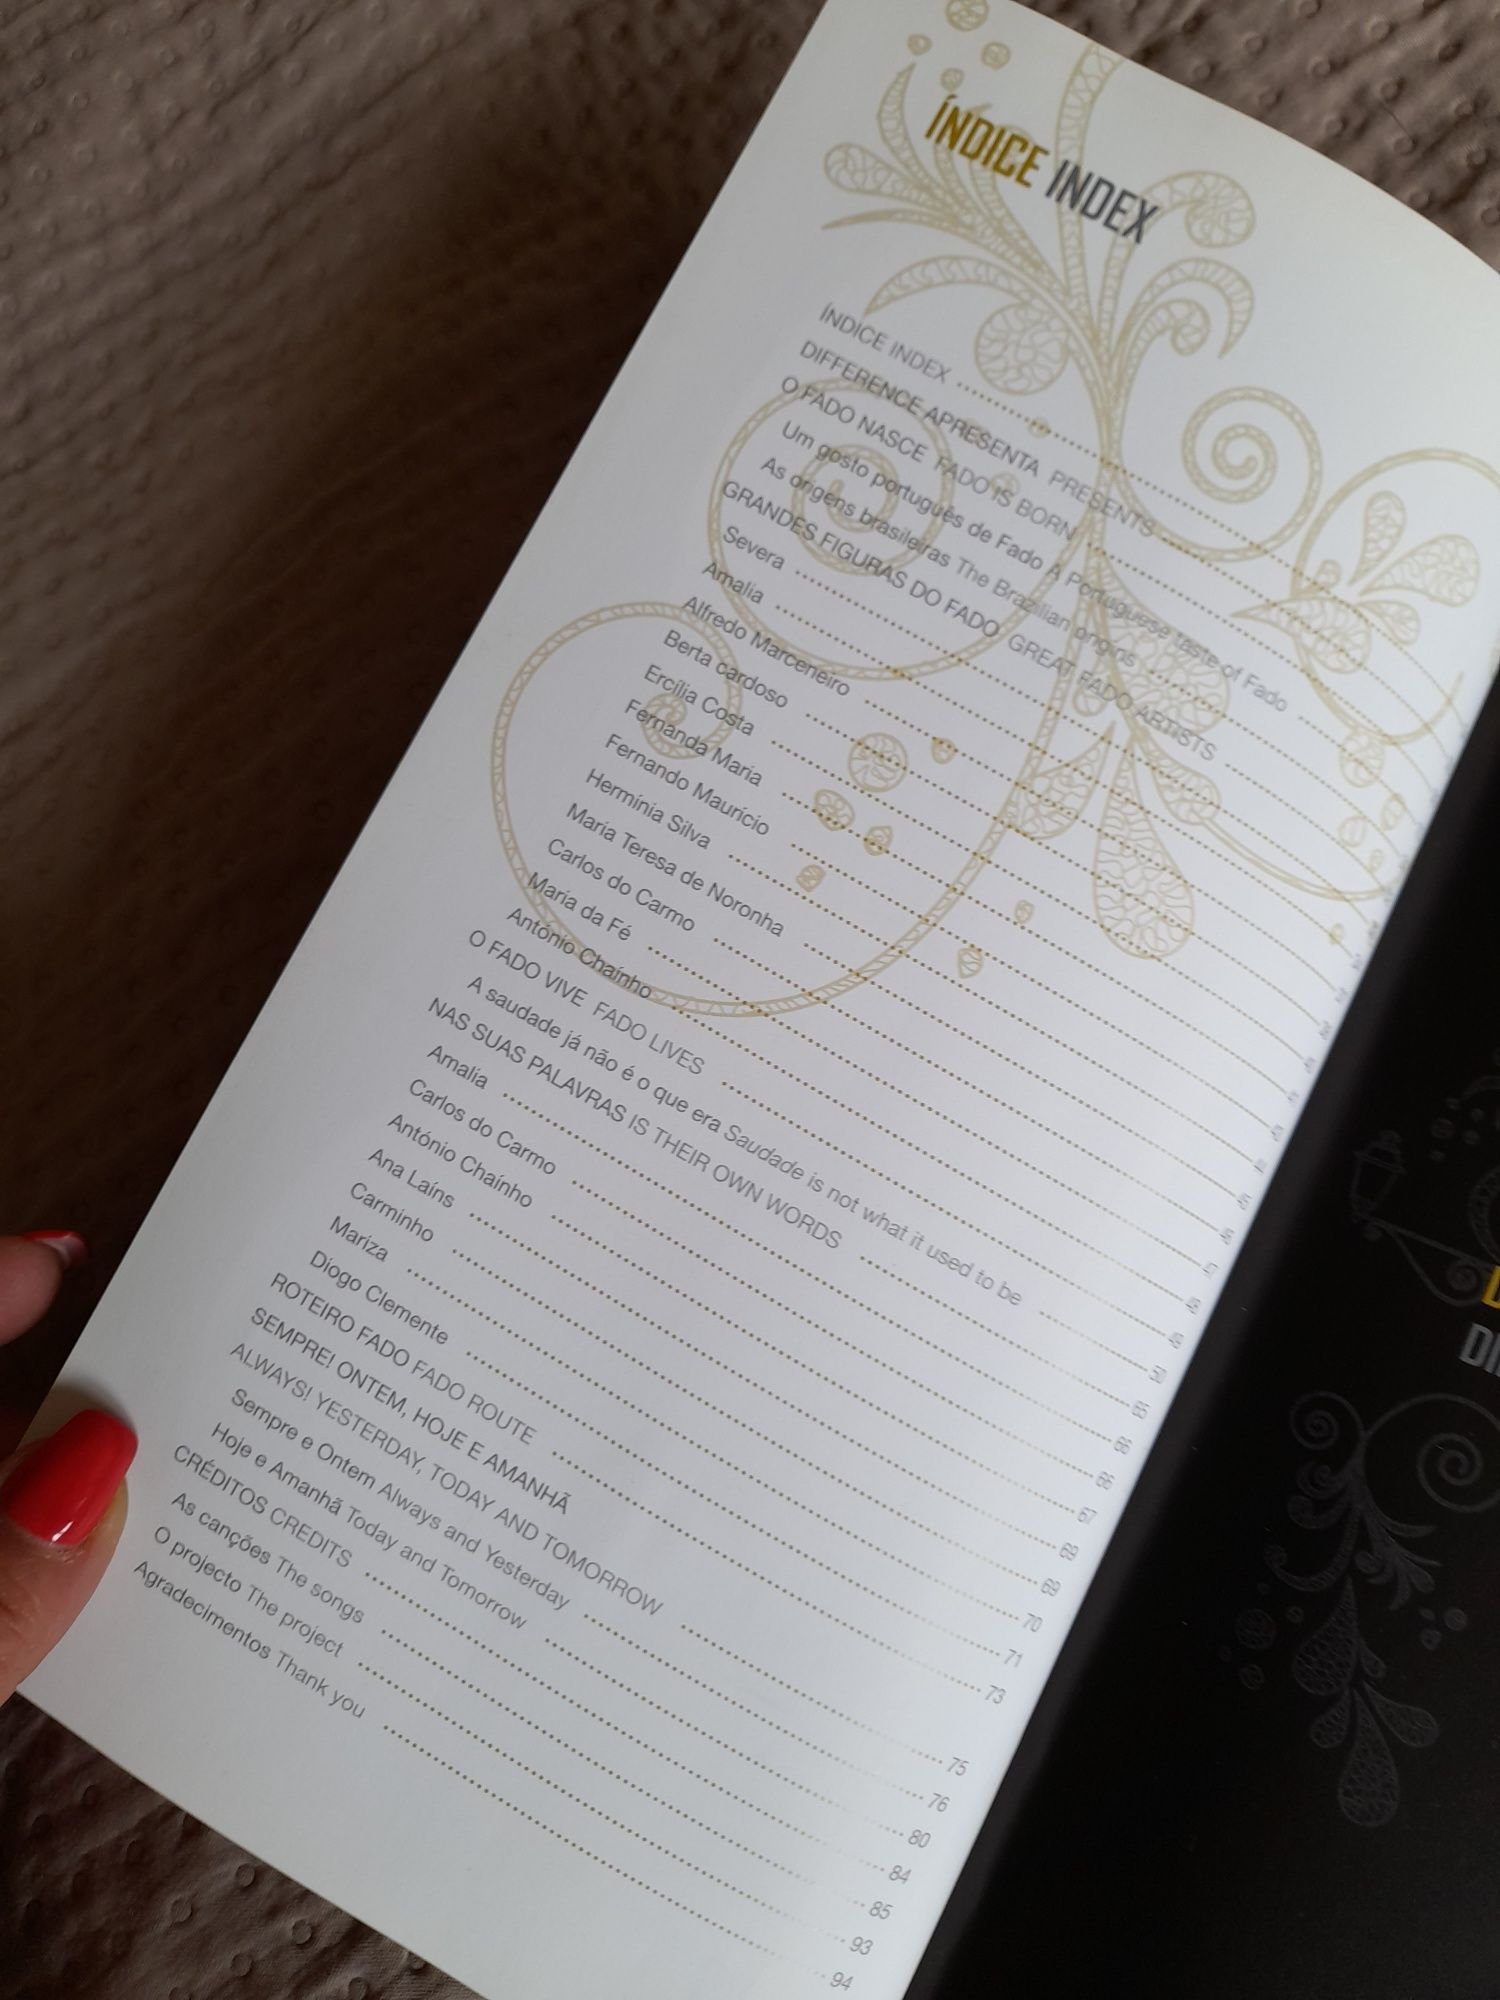 ÍNDICE INDEX
ÍNDICE INDEX
DIFFERENCE APRESENTA PRESENTS
O FADO NASCE FADO IS BORN
Um gosto português de Fado A Portuguese taste of Fado
As origens brasileiras The Brazilian origins
GRANDES FIGURAS DO FADO GREAT FADO ARTISTS
Severa
Amalia
Alfredo Marceneiro
Berta cardoso
Ercília Costa
Fernanda Maria
Fernando Maurício
Hermínia Silva
Maria Teresa de Noronha
Carlos do Carmo
Maria da Fé
António Chaínho
O FADO VIVE FADO LIVES
A saudade já não é o que era Saudade is not what it used to be 50
NAS SUAS PALAVRAS IS THEIR OWN WORDS 65
Amalia 66
Carlos do Carmo 66
António Chaínho 67
Ana Laíns 69
Carminho 69
Mariza 70
Diogo Clemente 71
ROTEIRO FADO FADO ROUTE 73
SEMPRE! ONTEM, HOJE E AMANHÃ
ALWAYS! YESTERDAY, TODAY AND TOMORROW 75
Sempre e Ontem Always and Yesterday 76
Hoje e Amanhã Today and Tomorrow 80
CRÉDITOS CREDITS 84
As canções The songs 85
O projecto The project 93
Agradecimentos Thank you 94